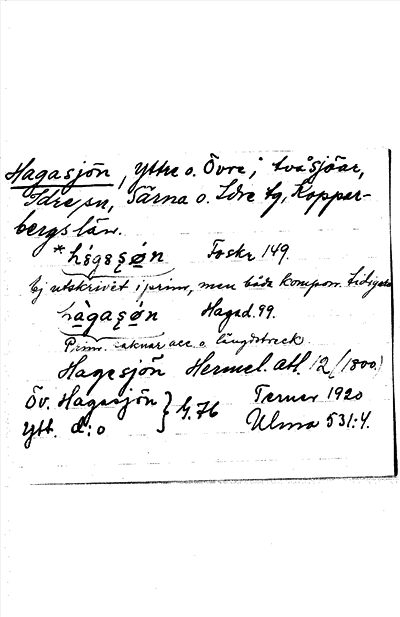 Hagasjön, Yttre o. Övre; två sjöar,
Idre sn, Särna o. Idre tg, Kopper-
bergs län.
Foskr 149.
Ej utskrivet i prim, men båda kompon. tidigare
hàgaʂøn Hagad. 99.
Prim. saknar acc. o längdstreck.
Hagesjön Hermel. atl. 12 (1800)
Öv. Hagasjön } G. 76 Terner 1920
Ytt. d:o Ulma 531:4.